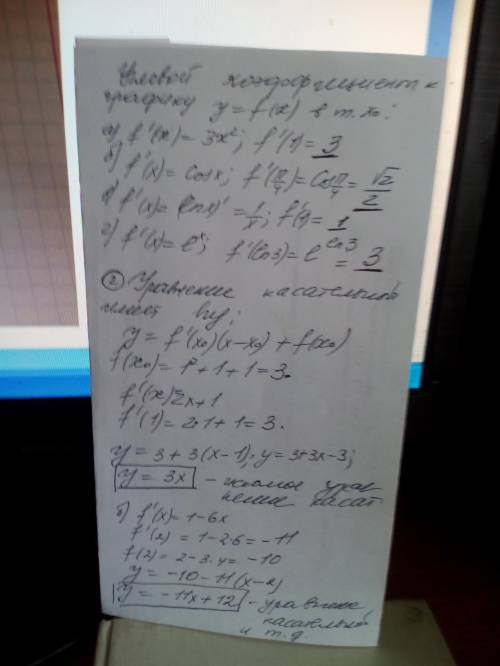 Угловой коэффициент к
графику y = f(x) в т. x₀:
а) f'(x) = 3x²; f'(1) = 3
б) f'(x) = cosx; f'(π/4) = cos π/4 = √2/2
в) f'(x) = (lnx)' = 1/x; f'(1) = 1
г) f'(x) = eˣ; f'(ln3) = e^ln3 = 3
② Уравнение касательной
имеет вид:
y = f'(x₀)(x-x₀) + f(x₀)
f(x₀) = 1² + 1 + 1 = 3.
f'(x) = 2x+1
f'(1) = 2·1 + 1 = 3.
y = 3 + 3(x-1); y = 3+3x-3;
y = 3x - искомое урав
нение касат.
б) f'(x) = 1-6x
f'(2) = 1-2·6 = -11
f(2) = 2-3·4 = -10
y = -10-11(x-2)
y = -11x+12 - уравнение
касательной
и т.д